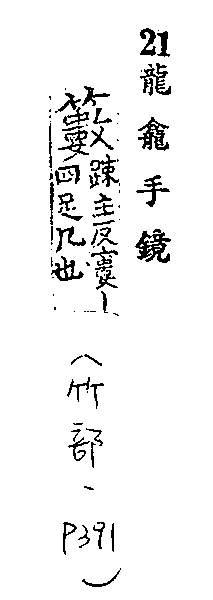 21龍龕手鏡
籔踈主反窶丨
四足几也
(竹部、P391)